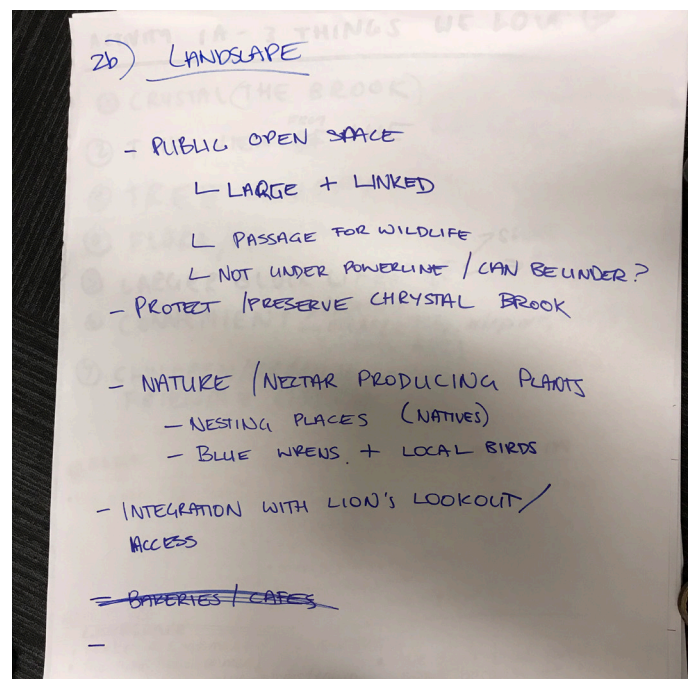 2b) LANDSCAPE
- PUBLIC OPEN SPACE
└ LARGE + LINKED
└ PASSAGE FOR WILDLIFE
└ NOT UNDER POWERLINE / CAN BE UNDER?
- PROTECT / PRESERVE CHRYSTAL BROOK
- NATURE / NECTAR PRODUCING PLANTS
- NESTING PLACES (NATIVES)
- BLUE WRENS + LOCAL BIRDS
- INTEGRATION WITH LION'S LOOKOUT /
ACCESS
- BAKERIES / CAFES
-